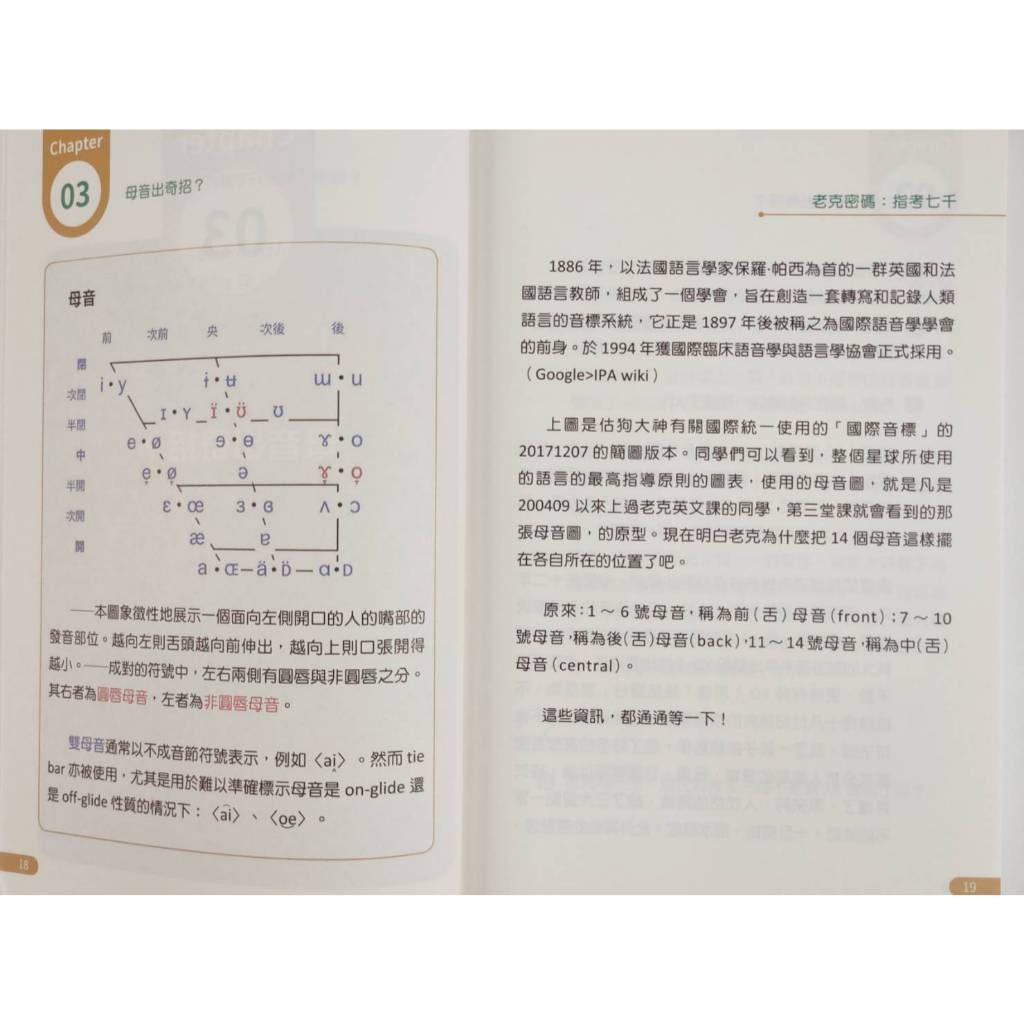 Chapter
03
母音出奇招？
母音
前 次前 央 次後 後
閉
i • y ɨ • ʉ ɯ • u
次閉
ɪ • ʏ ɪ̈ • ʊ̈ ʊ
半閉
e • ø ɘ • ɵ ɤ • o
中
e̞ • ø̞ ə ɤ̞ • o̞
半開
ɛ • œ ɜ • ɞ ʌ • ɔ
次開
æ ɐ
開
a • ɶ ä • ɒ̈ ɑ • ɒ
──本圖象徵性地展示一個面向左側開口的人的嘴部的
發音部位。越向左則舌頭越向前伸出，越向上則口張開得
越小。──成對的符號中，左右兩側有圓唇與非圓唇之分。
其右者為圓唇母音，左者為非圓唇母音。
雙母音通常以不成音節符號表示，例如〈ai̯〉。然而 tie
bar 亦被使用，尤其是用於難以準確標示母音是 on-glide 還
是 off-glide 性質的情況下：〈a͡i〉、〈o͜e〉。
18
老克密碼：指考七千
1886 年，以法國語言學家保羅·帕西為首的一群英國和法
國語言教師，組成了一個學會，旨在創造一套轉寫和記錄人類
語言的音標系統，它正是 1897 年後被稱之為國際語音學學會
的前身。於 1994 年獲國際臨床語音學與語言學協會正式採用。
（Google>IPA wiki）
上圖是估狗大神有關國際統一使用的「國際音標」的
20171207 的簡圖版本。同學們可以看到，整個星球所使用
的語言的最高指導原則的圖表，使用的母音圖，就是凡是
200409 以來上過老克英文課的同學，第三堂課就會看到的那
張母音圖，的原型。現在明白老克為什麼把 14 個母音這樣擺
在各自所在的位置了吧。
原來：1～6 號母音，稱為前（舌）母音（front）；7～10
號母音，稱為後（舌）母音（back），11～14 號母音，稱為中（舌）
母音（central）。
這些資訊，都通通等一下！
19